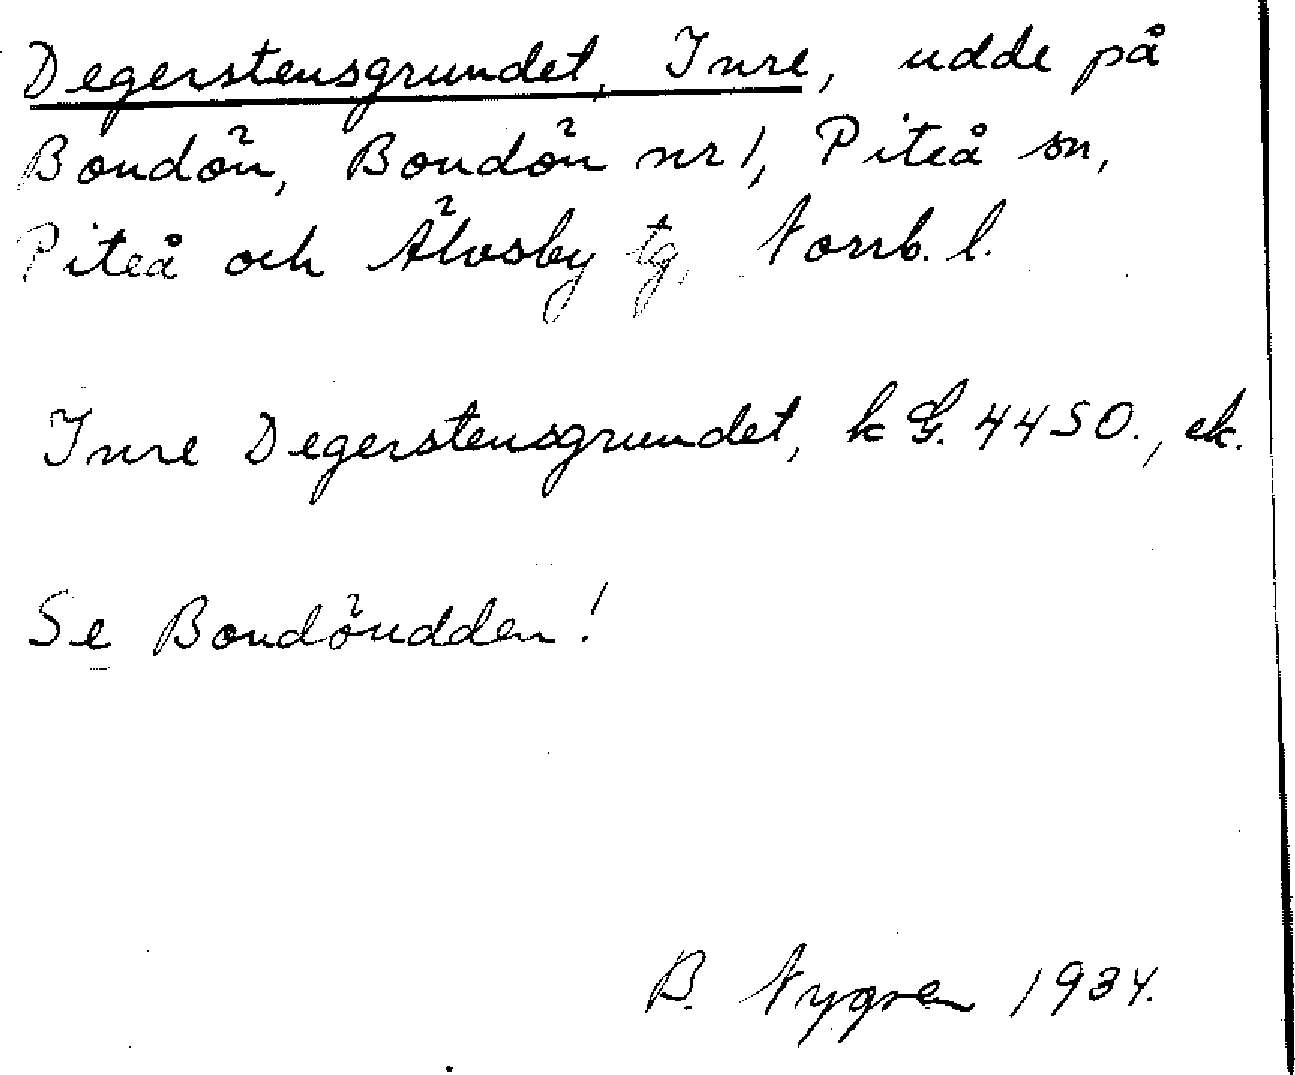 Degerstensgrundet, Inre, udde på
Bondön, Bondön nr 1, Piteå sn,
Piteå och Älvsby tg, Norrb. l.
Inre Degerstensgrundet, k G. 4450., ek.
Se Bondöudden!
B. Nygren 1934.